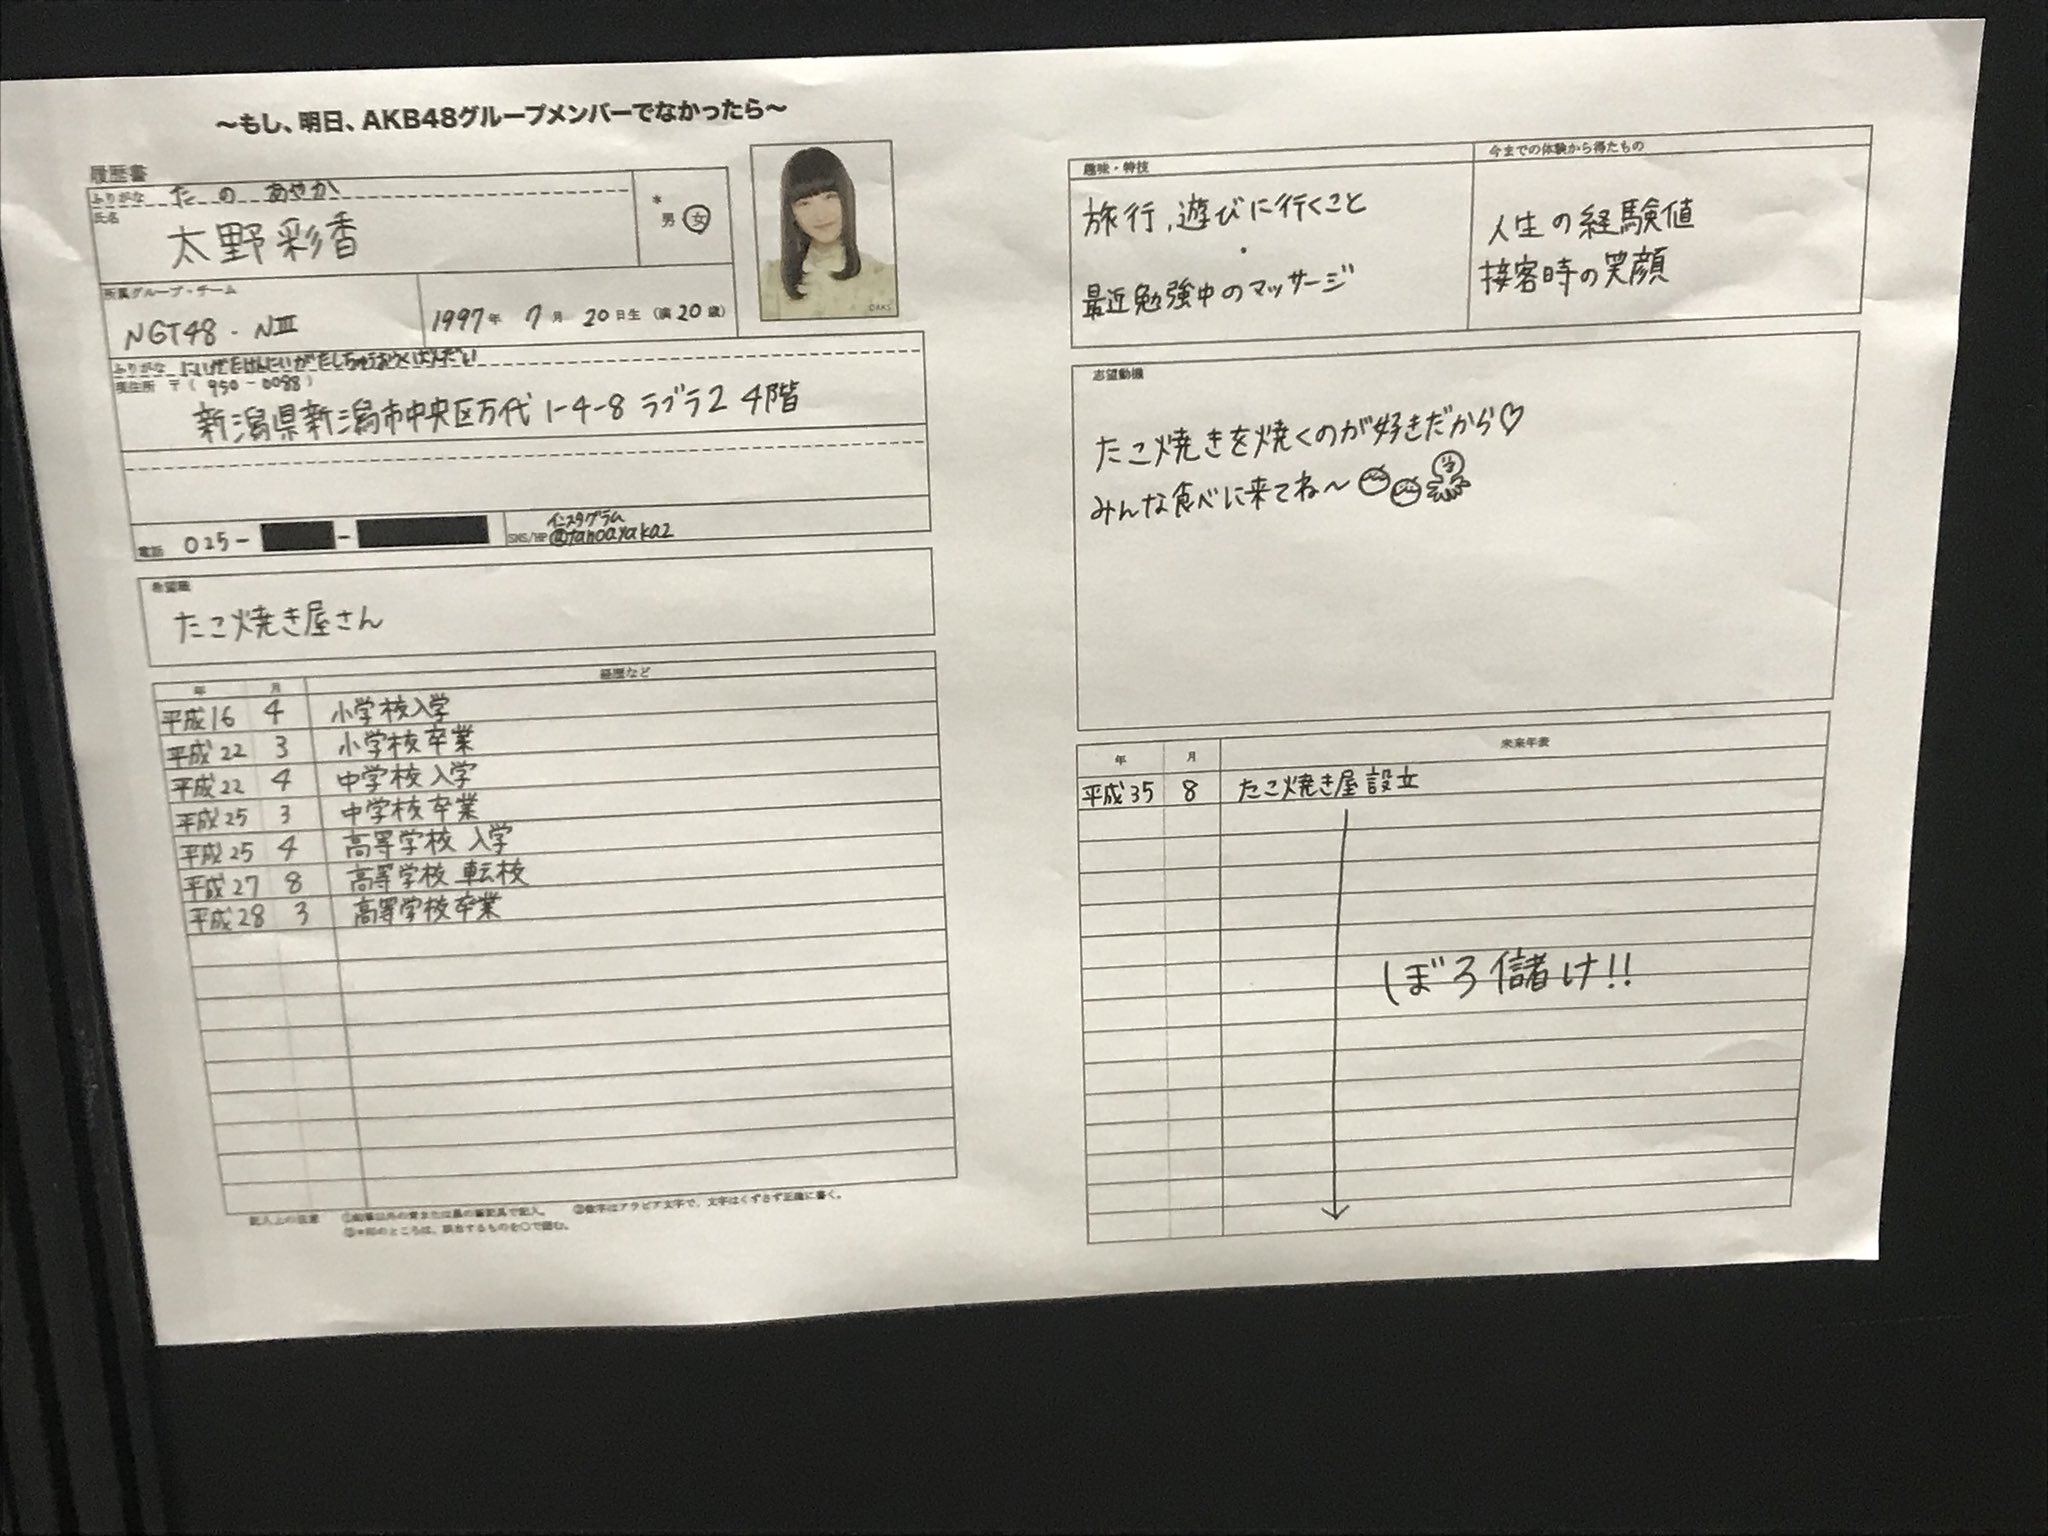 ～もし、明日、AKB48グループメンバーでなかったら～
履歴書
ふりがな たの あやか
氏名
太野彩香
*
男 女
©AKS
所属グループ・チーム
NGT48 - NⅢ
1997年 7月 20日生 (満20歳)
ふりがな にいがたけんにいがたしちゅうおうくばんだい
現住所 〒(950-0088)
新潟県新潟市中央区万代1-4-8 ラブラ2 4階
電話 025- -
SNS/HP インスタグラム
@tanoayaka2
希望職
たこ焼き屋さん
年 月 経歴など
平成16 4 小学校入学
平成22 3 小学校卒業
平成22 4 中学校入学
平成25 3 中学校卒業
平成25 4 高等学校 入学
平成27 8 高等学校 転校
平成28 3 高等学校卒業
記入上の注意 ①鉛筆以外の青または黒の筆記具で記入。 ②数字はアラビア文字で、文字はくずさず正確に書く。
③*印のところは、該当するものを○で囲む。
趣味・特技
旅行、遊びに行くこと
・
最近勉強中のマッサージ
今までの体験から得たもの
人生の経験値
接客時の笑顔
志望動機
たこ焼きを焼くのが好きだから♡
みんな食べに来てね～
年 月 未来年表
平成35 8 たこ焼き屋 設立
ぼろ儲け!!